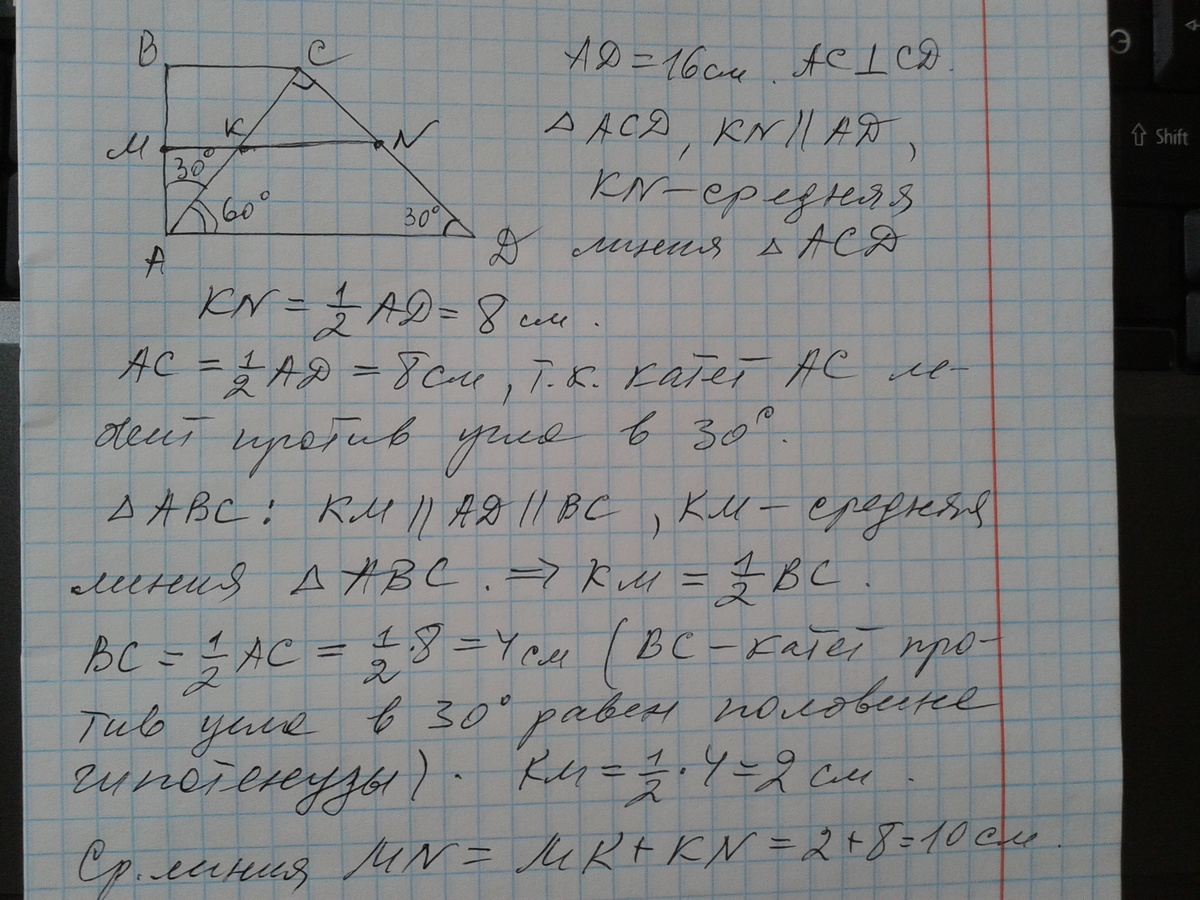 B C
M K N
30° 60° 30°
A D
AD = 16 см. AC ⊥ CD.
△ ACD, KN || AD,
KN – средняя
линия △ ACD
KN = 1/2 AD = 8 см.
AC = 1/2 AD = 8 см, т.к. катет AC ле-
жит против угла в 30°.
△ ABC: KM || AD || BC, KM – средняя
линия △ ABC. ⇒ KM = 1/2 BC.
BC = 1/2 AC = 1/2 · 8 = 4 см (BC – катет про-
тив угла в 30° равен половине
гипотенузы). KM = 1/2 · 4 = 2 см.
Ср. линия MN = MK + KN = 2 + 8 = 10 см.
Э
⇧ Shift